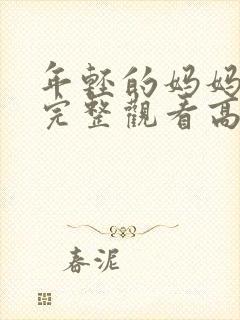 年輕的妈妈
完整觀看高
春泥